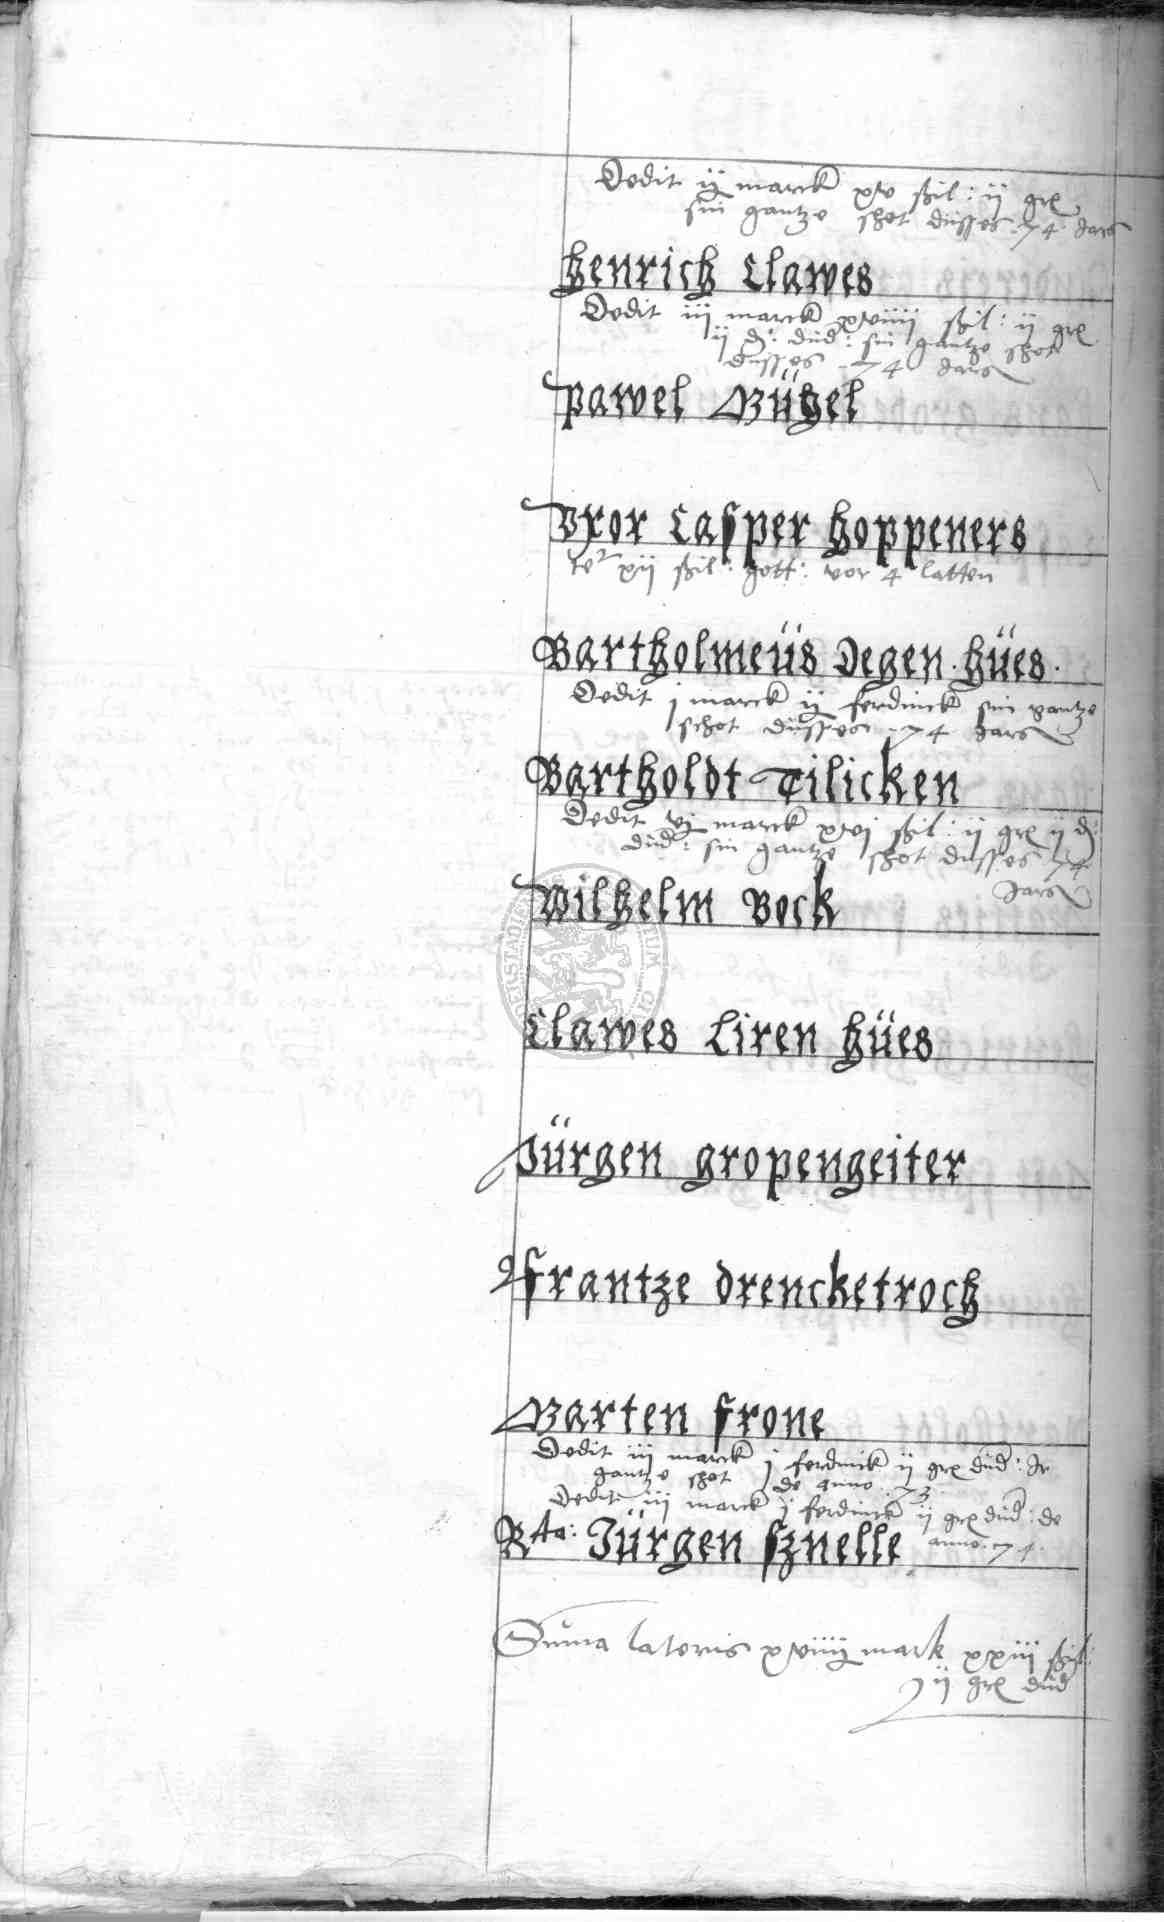 Dedit ij marck xv ßil: ij gre
sin gantze schot düsses 74 Jars
Henrich Clawes
Dedit iij marck xviiij ßil: ij gre
ij d: düd: sin gantze schot
düsses 74 Jars
Pawel Mühel
Vxor Casper Hoppeners
te xij ßil: gott: vor 4 latten
Bartholmeüs Degen hües
Dedit j marck ij ferdinck sin gantze
schot düsses 74 Jars
Bartholdt Tilicken
Dedit vj marck xvj ßil: ij gre ij d:
düd: sin gantze schot düsses 74
Jars
Wilhelm Bock
Clawes Liren hües
Jürgen gropengeiter
Frantze drencketroch
Marten Frone
Dedit iij marck j ferdinck ij gre düd: Jr
gantze schot de anno 73
Dedit iij marck j ferdinck ij gre düd: de
anno 74
Rta: Jürgen sznelle
Suma lateris xviiij mark xxiij ßil:
ij gre düd